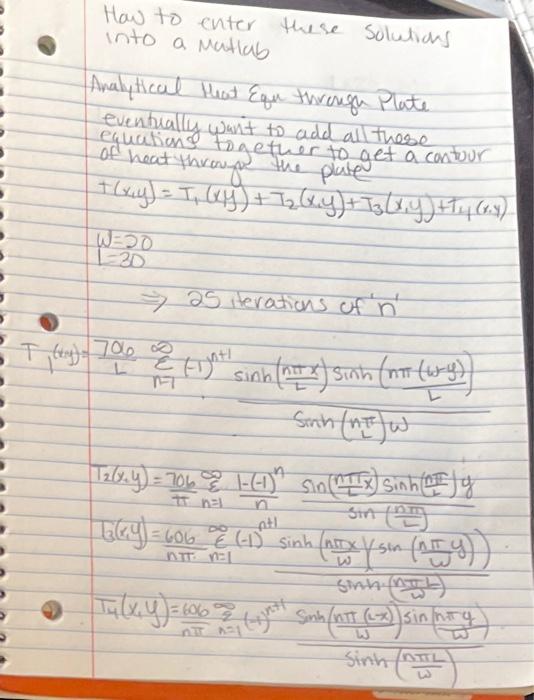 How to enter these solutions
into a Matlab
Analytical Heat Eqn through Plate
eventually want to add all these
equations together to get a contour
of heat through the plate
T(x,y) = T₁(x,y) + T₂(x,y) + T₃(x,y) + T₄(x,y)
W=20
L=30
⇒ 25 iterations of 'n'
T₁(x,y) = 706/L ∑_{n=1}^{∞} (-1)^{n+1} sinh(nπx/L) sinh(nπ(w-y)/L) / Sinh(nπ/L)w
T₂(x,y) = 706/π ∑_{n=1}^{∞} 1-(-1)^n/n sin(nπx/L) sinh(nπ/L)y / sin(nπ/L)
T₃(x,y) = 606/nπ ∑_{n=1}^{∞} (-1)^{n+1} sinh(nπx/w)(sin(nπ/w y)) / sinh(nπL/w)
T₄(x,y) = 606/nπ ∑_{n=1}^{∞} (-1)^{n+1} Sinh(nπ(L-x)/w) sin(nπy/w) / Sinh(nπL/w)